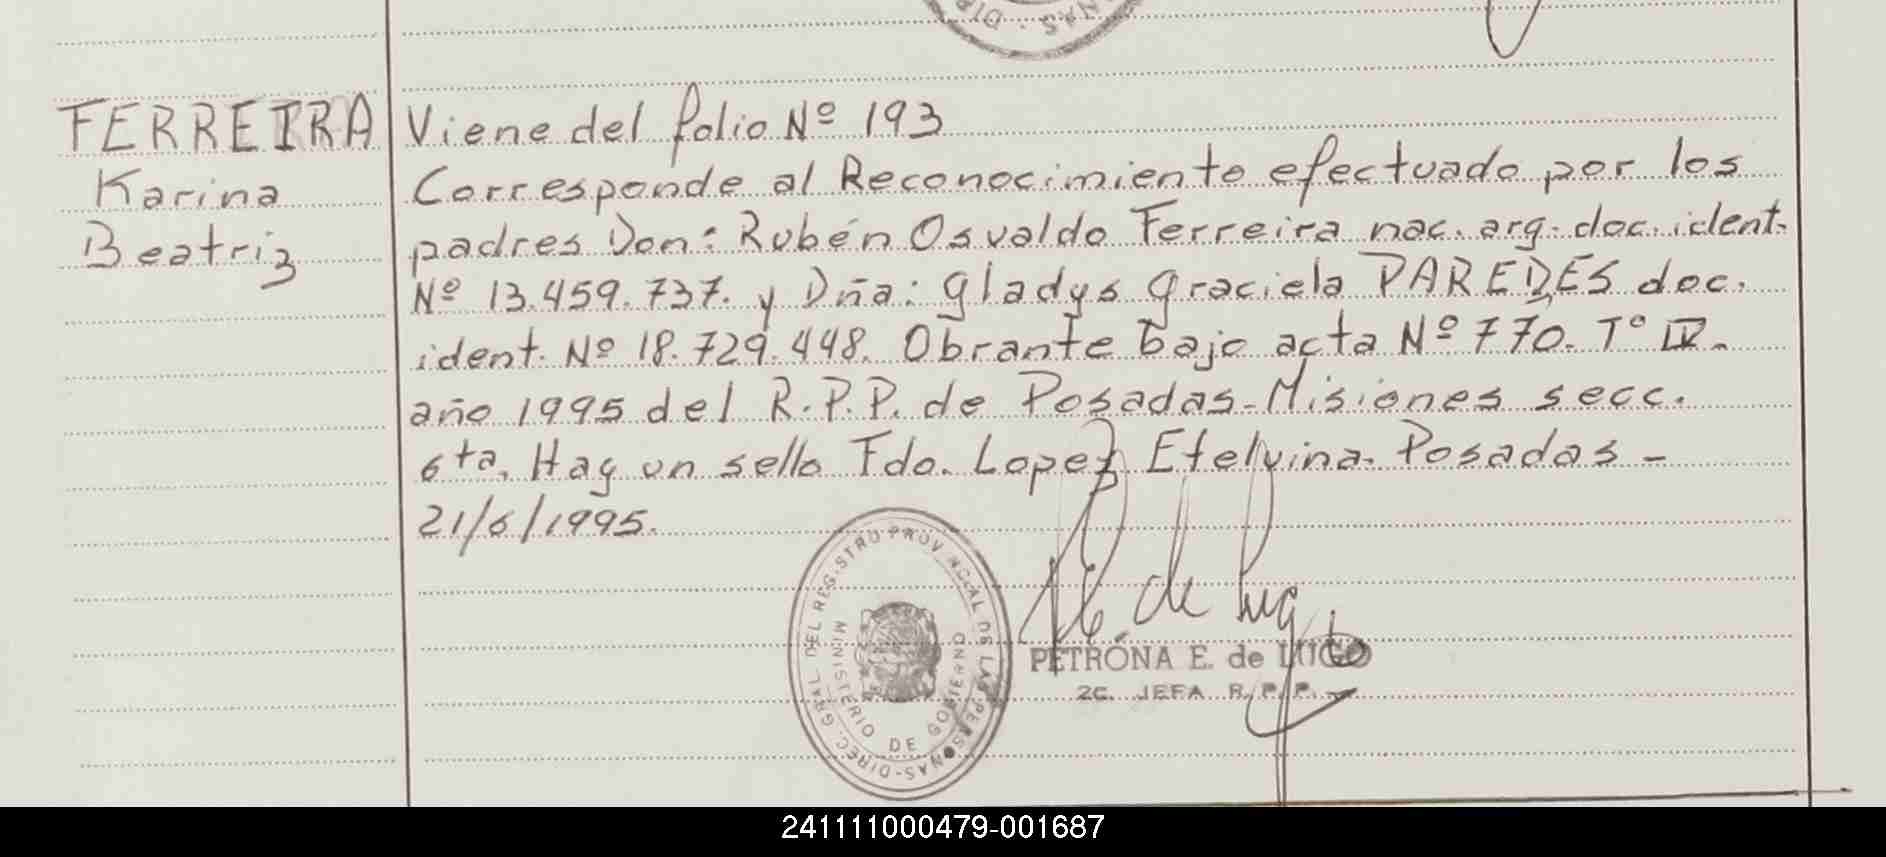 FERREIRA
Karina
Beatriz
Viene del folio Nº 193
Corresponde al Reconocimiento efectuado por los
padres Don: Rubén Osvaldo Ferreira nac. arg. doc. ident.
Nº 13.459.737. y Dña: Gladys Graciela PAREDES doc.
ident. Nº 18.729.448. Obrante bajo acta Nº 770. Tº IV.
año 1995 del R.P.P. de Posadas-Misiones secc.
6ta. Hay un sello Fdo. Lopez Etelvina. Posadas -
21/6/1995.
DIREC. GRAL DEL REGISTRO PROVINCIAL DE LAS PERSONAS
MINISTERIO DE GOBIERNO
PETRONA E. de LUGO
2ª. JEFA R.P.P.
241111000479-001687